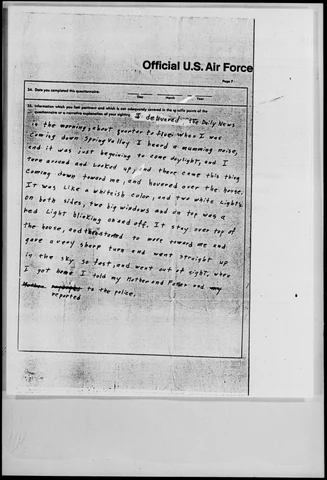 Official U.S. Air Force
Page 7
34. Date you completed this questionnaire:
Day Month Year
35. Information which you feel pertinent and which is not adequately covered in the specific points of the
questionnaire or a narrative explanation of your sighting.
I delivered the Daily News
in the morning, about quarter to five. When I was
coming down Spring Valley I heard a humming noise,
and it was just begining to come daylight, and I
turn around and looked up, and there came this thing
coming down toward me, and hovered over the house.
It was like a whiteish color, and two white lights
on both sides, two big windows and on top was a
red light blinking on and off. It stay over top of
the house, and then started to move toward me and
gave a very sharp turn and went straight up
in the sky so fast, and went out of sight, when
I got home I told my Mother and Father and my
reported to the police.